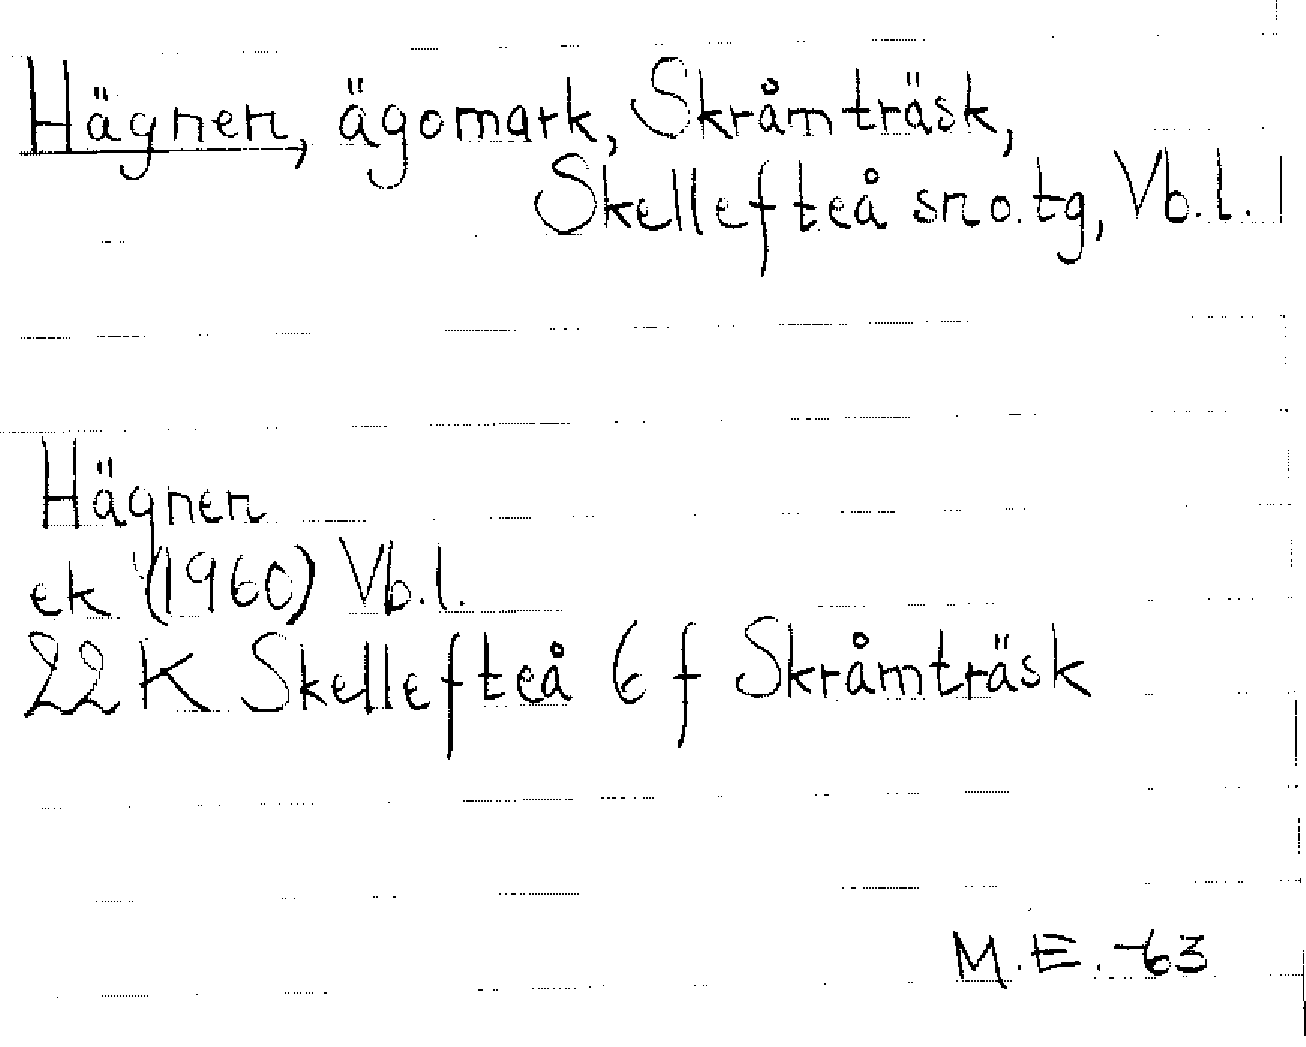 Hägnen, ägomark, Skråmträsk,
Skellefteå sn o. tg, Vb.l.
Hägnen
ek (1960) Vb.l.
22 K Skellefteå 6 f Skråmträsk
M.E. -63